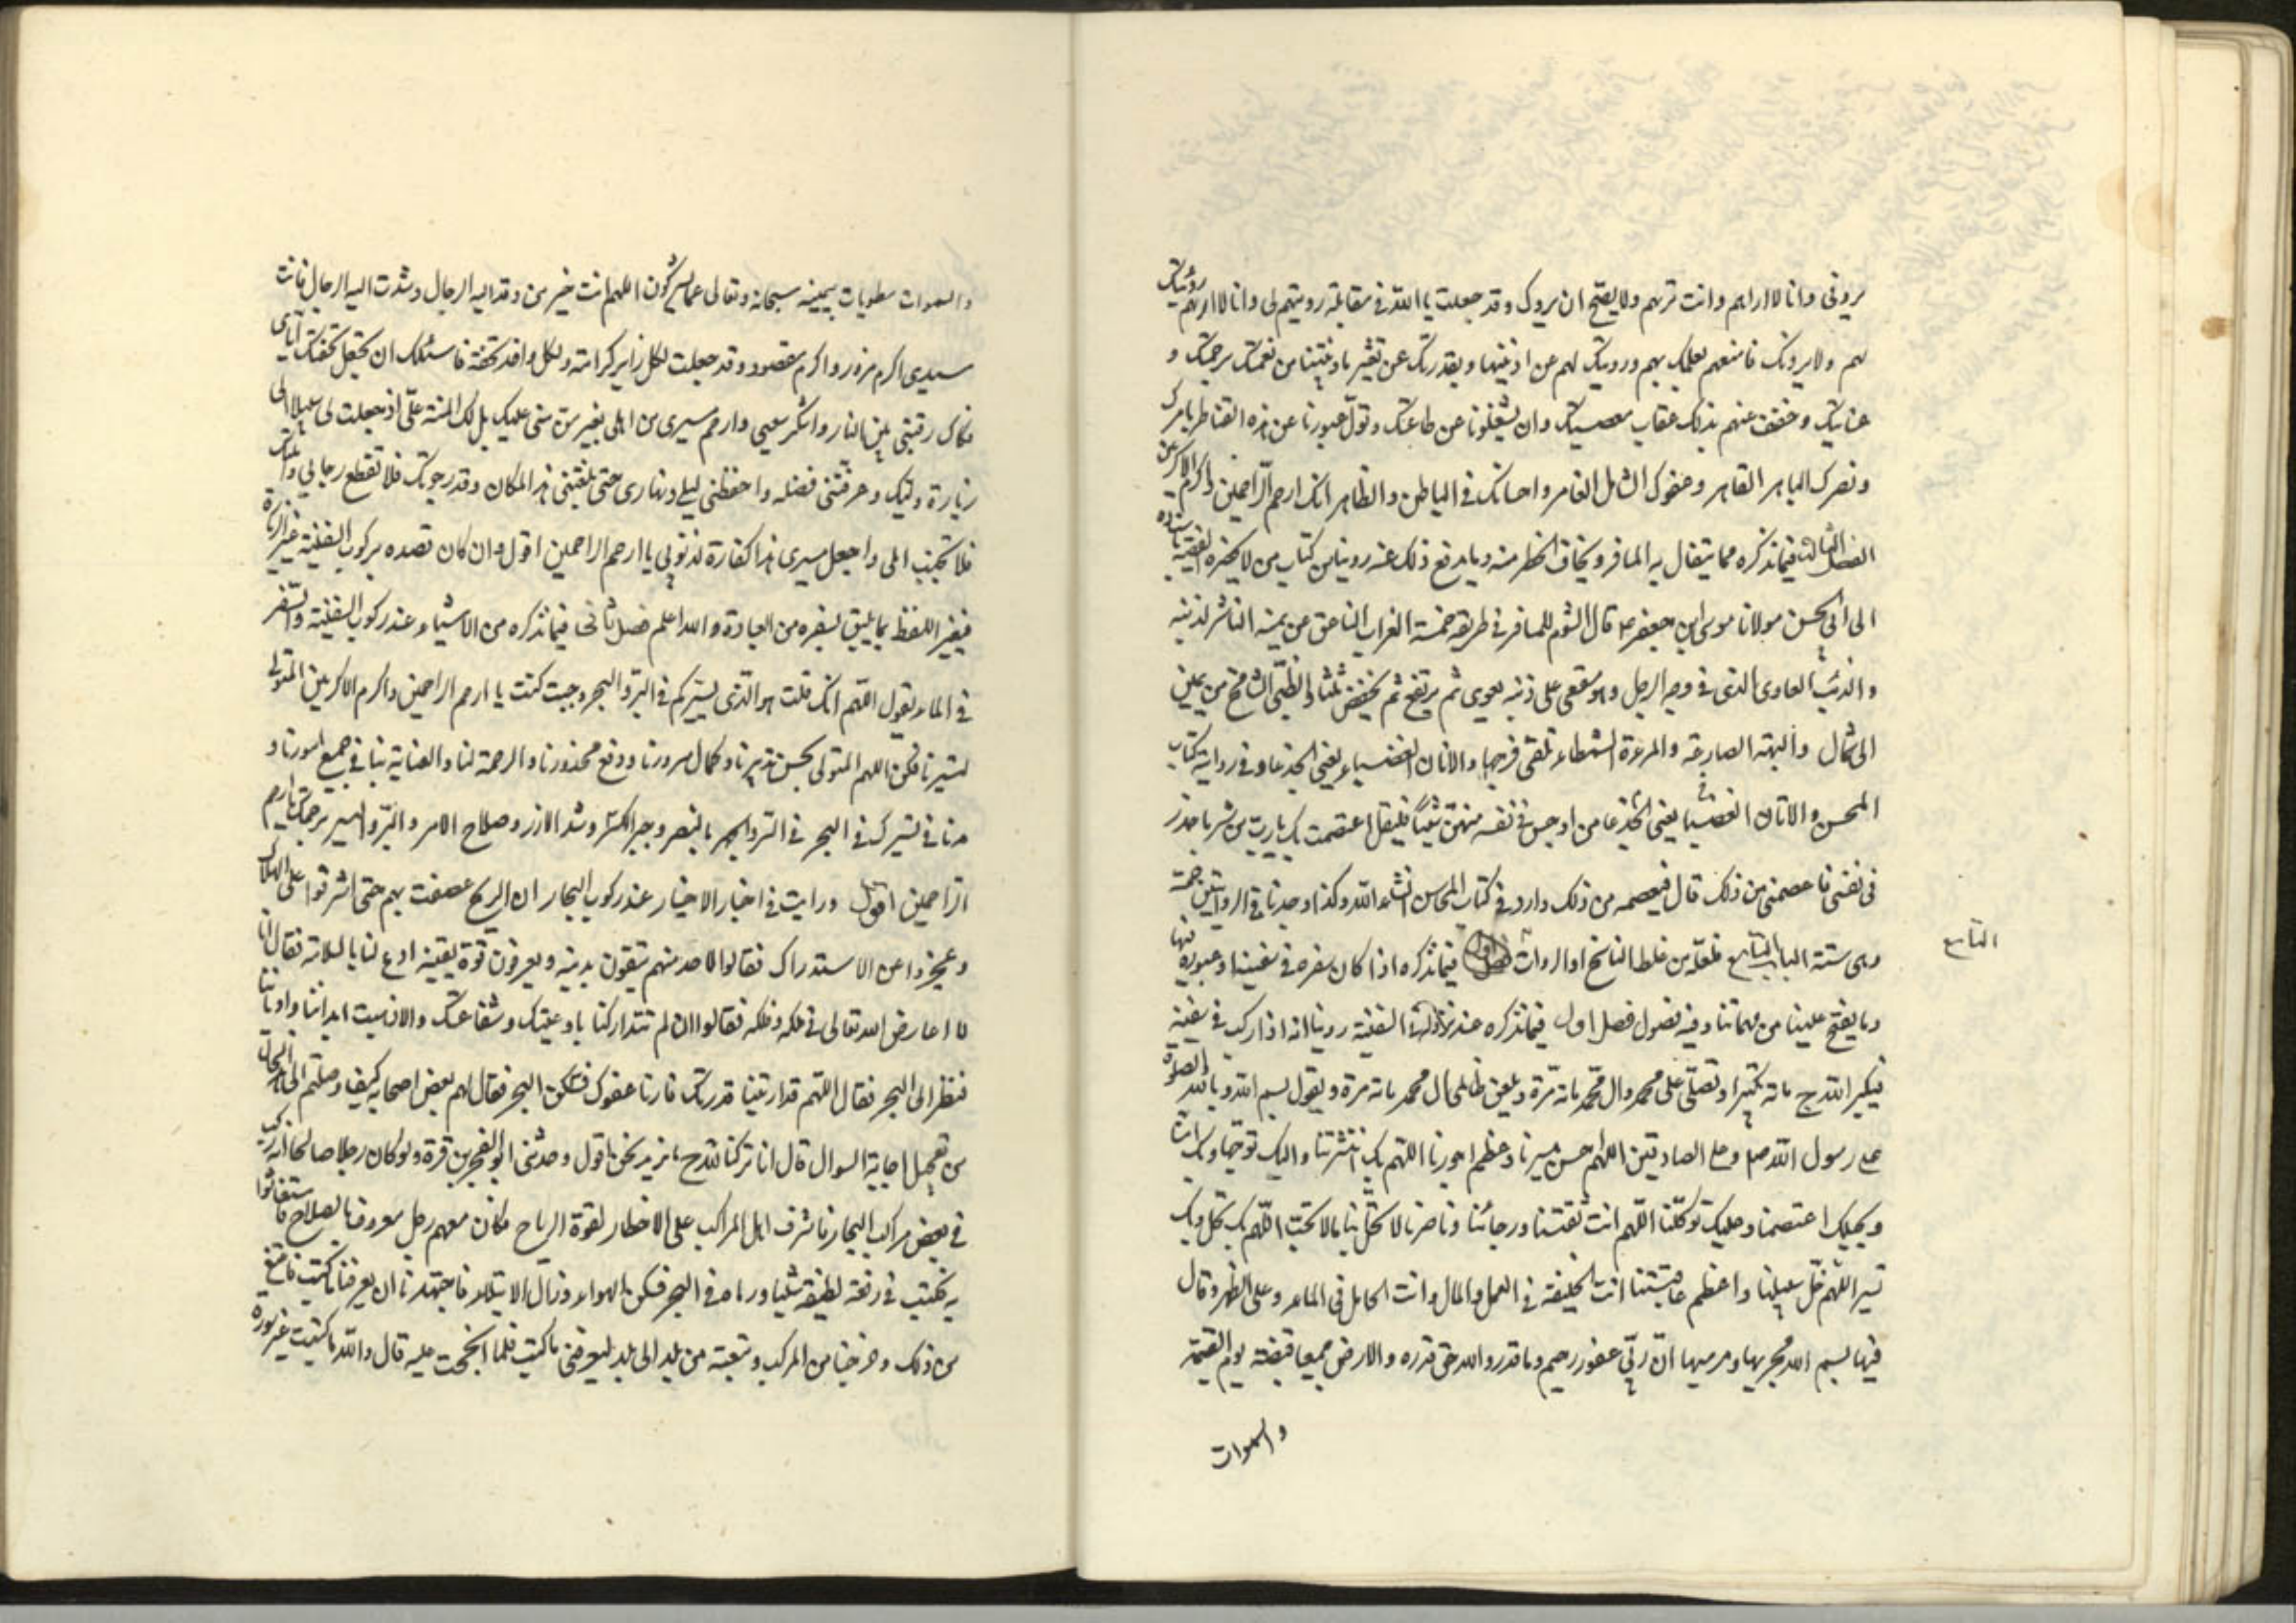 يروني وانا لا اراهم وانت تريهم ولا يصح ان يروك وقد جعلت يا الله في مقابلة رويتهم لي وانا لا اراهم رؤيتك
لهم ولا يرونك فامنعهم بعلمك بهم ورويتك لهم عن اذيتنا وبقدرتك عن تغيير ما وهبتنا من نعمتك برحمتك و
عنايتك وخفف عنهم بذلك عقاب معصيتك وان يشغلونا عن طاعتك وتول عبورنا عن هذه القناطر بامرك
ونصرك الباهر القاهر وعفوك الشامل الغامر واحسانك في الباطن والظاهر انك ارحم الراحمين واكرم الاكرمين
الفصل الثالث فيما نذكره مما يتفال به المسافر ويخاف الخطر منه وما يدفع ذلك عنه روينا من كتاب من لا يحضره الفقيه باسناده
الى ابي الحسن مولانا موسى ابن جعفر ع قال الشوم للمسافر في طريقه خمسة الغراب الناعق عن يمينه الناشر لذنبه
والذئب العاوى الذى في وجه الرجل وهو مقعى على ذنبه يعوى ثم يرتفع ثم يخفض ثلثا والظبي السانح من يمين
الى شمال والبومة الصارخة والمرءة الشمطاء تلقى فرجها والاتان العضباء يعني الجذعاء وفي رواية كتاب
المحسن والاتان العضبا يعني الجذعا من اوجس في نفسه منهن شيئا فليقل اعتصمت بك يا رب من شر ما اجد
في نفسي فاعصمني من ذلك قال فيعصمه من ذلك وارد في كتاب المحاسن انشاء الله وكذا وجدنا في الروايتين خمسة
وهي ستة الباب التاسع فلعله من غلط الناسخ او الروات فصل اول فيما نذكره اذا كان سفره في سفينة او عبوره فيها
التاسع
وما يفتح علينا من مهماتنا وفيه فصول فصل اول فيما نذكره عند نزوله في السفينة روينا انه اذا ركب في سفينة
فيكبر الله ج مائة تكبيرة وتصلى على محمد وال محمد مائة مرة ويلعن ظالمي ال محمد مائة مرة ويقول بسم الله وبالله والصلوة
على رسول الله صلع وعلى الصادقين اللهم احسن مسيرنا وعظم اجورنا اللهم بك انتشرنا واليك توجهنا وبك امنا
وبحبلك اعتصمنا وعليك توكلنا اللهم انت ثقتنا ورجائنا وناصرنا لا تحل بنا ما لا تحب اللهم بك نحل وبك
نسير اللهم خل سبيلنا واعظم عافيتنا انت الخليفة في الاهل والمال وانت الحامل في الماء وعلى الظهر وقال
فيها بسم الله مجريها ومرسيها ان ربي غفور رحيم وما قدروا الله حق قدره والارض جميعا قبضته يوم القيمة
والسموات
والسموات مطويات بيمينه سبحانه وتعالى عما يشركون اللهم انت خير من وفد اليه الرجال وشدت اليه الرحال فانت
سيدى اكرم مزور واكرم مقصود وقد جعلت لكل زاير كرامة ولكل وافد تحفة فاسئلك ان تجعل تحفتك اياى
فكاك رقبتي من النار واشكر سعيي وارحم مسيرى من اهلي بغير من مني عليك بل لك المنة علي اذ جعلت لي سبيلا الى
زيارة وليك وعرفتني فضله واحفظني ليلي ونهارى حتى بلغتني هذا المكان وقد رجوتك فلا تقطع رجائي واملتك
فلا تخيب املي واجعل مسيرى هذا كفارة لذنوبي يا ارحم الراحمين اقول وان كان قصده بركوب السفينة غير الزيارة
فيغير اللفظ بما يليق بسفره من العبادة والله اعلم فصل ثاني فيما نذكره من الاشياء عند ركوب السفينة والسفر
في الماء يقول اللهم انك قلت هو الذى يسيركم في البر والبحر وحيث كنت يا ارحم الراحمين واكرم الاكرمين المتولى
لتسيرنا فكن اللهم المتولى بحسن تدبيرنا وكمال سرورنا ودفع محذورنا والرحمة لنا والعناية بنا في جميع امورنا و
مدنا في تسيرك في البحر في البر والبحر بالنصر وجبر الكسر وشد الازر وصلاح الامر والبر واليسر برحمتك يا ارحم
الراحمين اقول ورايت في اخبار الاخيار عند ركوب البحار ان الريح عصفت بهم حتى اشرفوا على الهلاك
وعجزوا عن الاستدراك فقالوا لاحد منهم يثقون بدينه ويعرفون قوة يقينه ادع لنا بالسلامة فقال انا
لا اعارض الله تعالى في ملكه وفلكه فقالوا ان لم تتداركنا بادعيتك وشفاعتك والا نسيت ابداننا وادياننا
فنظر الى البحر فقال اللهم قد اريتنا قدرتك فارنا عفوك فسكن البحر فقال لهم بعض اصحابه كيف وصلتم الى الحال
من تعجيل اجابة السوال قال انا تركنا لله ج ما نريد نحن اقول وحدثني ابو الفخر بن قرة ولو كان رجلا صالحا انه ركب
في بعض مراكب البحار فاشرف اهل المراكب على الاخطار لقوة الرياح وكان معهم رجل معروف بالصلاح فاستغاثوا
به فكتب في رقعة لطيفة شيئا ورماه في البحر فسكن الهواء وزال الابتلاء فاجتهدنا ان يعرفنا ما كتب فامتنع
من ذلك وخرجنا من المركب وتبعته من بلد الى بلد ليعرفني ما كتب فلما الححت عليه قال والله ما كتبت غير سورة